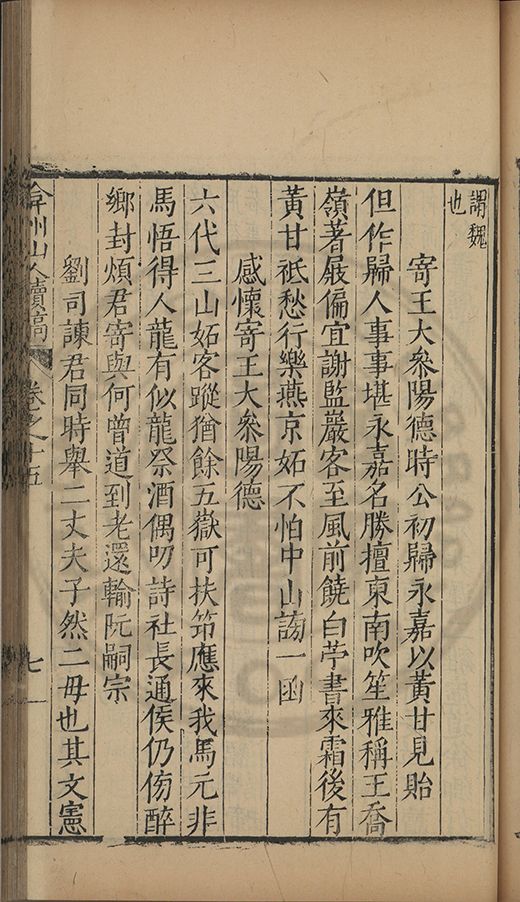 謂魏
也
寄王大叅陽德時公初歸永嘉以黃甘見貽
但作歸人事事堪永嘉名勝擅東南吹笙雅稱王喬
嶺著屐偏宜謝監巖客至風前饒白苧書來霜後有
黃甘祗愁行樂燕京妬不怕中山謗一函
感懷寄王大叅陽德
六代三山妬客蹤猶餘五嶽可扶笻應來我馬元非
馬悟得人龍有似龍祭酒偶叨詩社長通侯仍傍醉
鄉封煩君寄與何曾道到老還輸阮嗣宗
劉司諫君同時舉二丈夫子然二毋也其文憲
弇州山人續稿 卷之十五 七